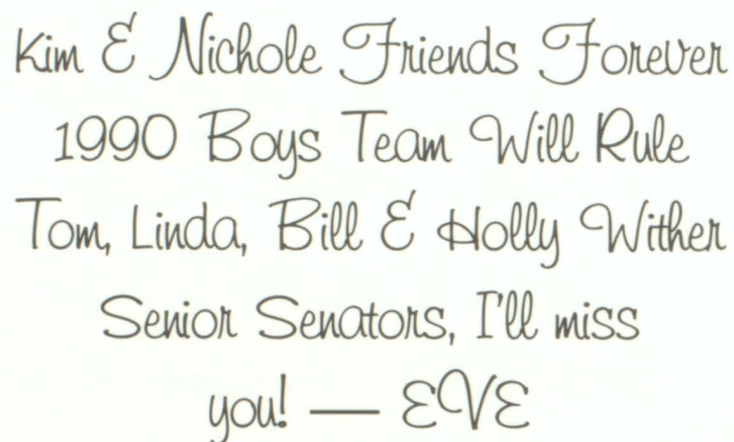 Kim & Nichole Friends Forever
1990 Boys Team Will Rule
Tom, Linda, Bill & Holly Wither
Senior Senators, I'll miss
you! — EVE